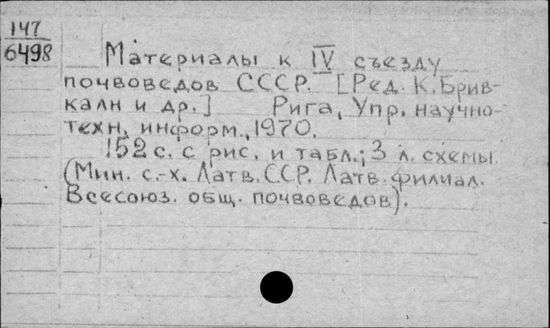 147
6498
Материалы к IV съезду
почвоведов СССР. [Ред. К. Брив-
калн и др.] Рига, Упр. научно-
техн. информ., 1970.
152 с. с рис. и табл.; 3 л. схемы
(Мин. с.-х. Латв. ССР. Латв. филиал.
Всесоюз. общ. почвоведов).